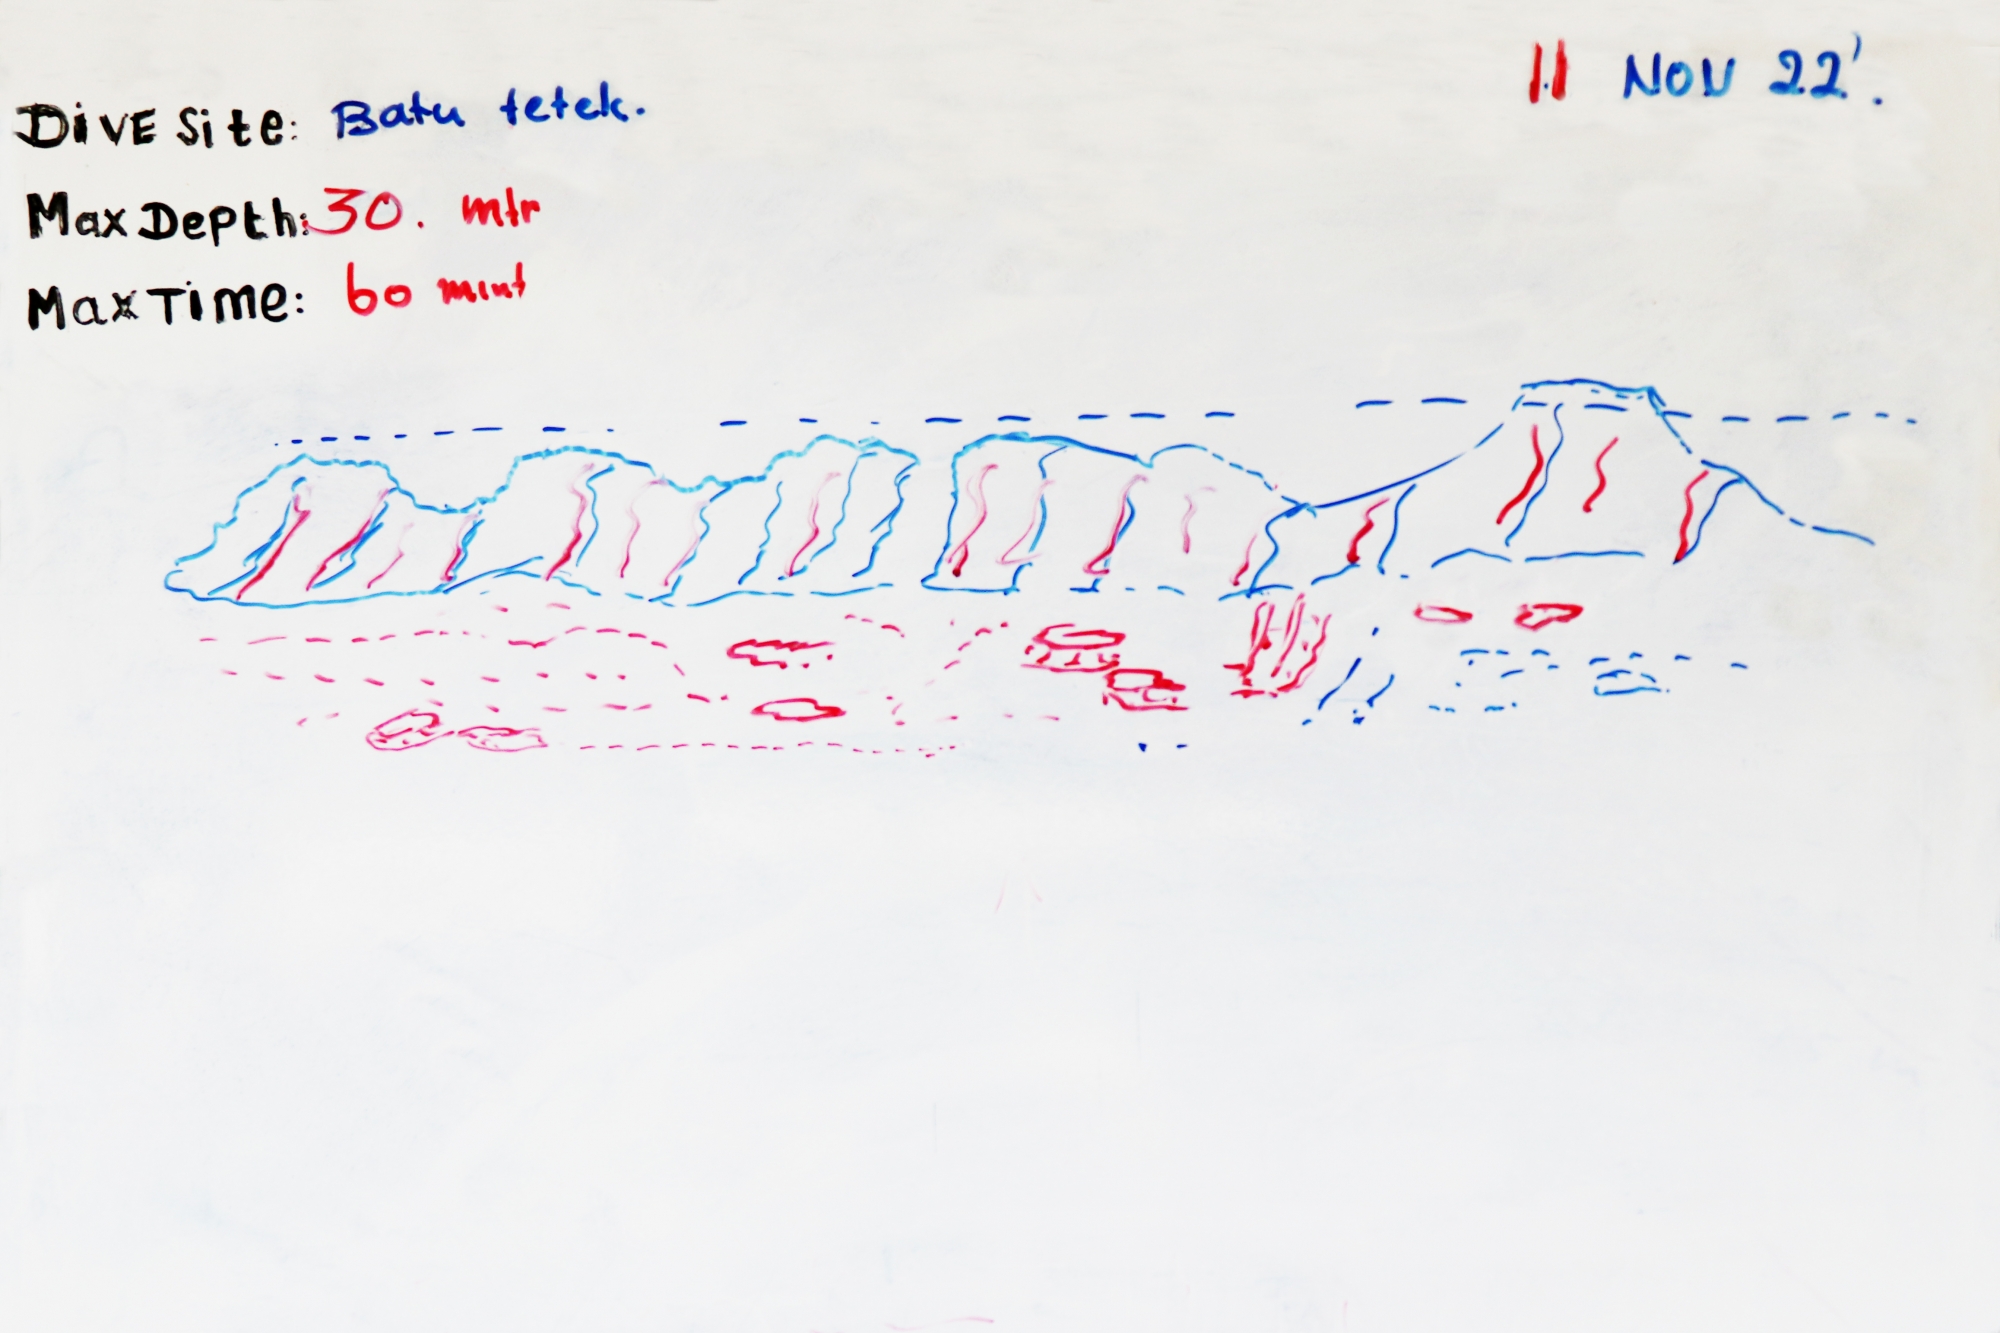 11 NOV 22'.
Dive Site: Batu tetek.
Max Depth: 30. mtr
Max Time: 60 mint